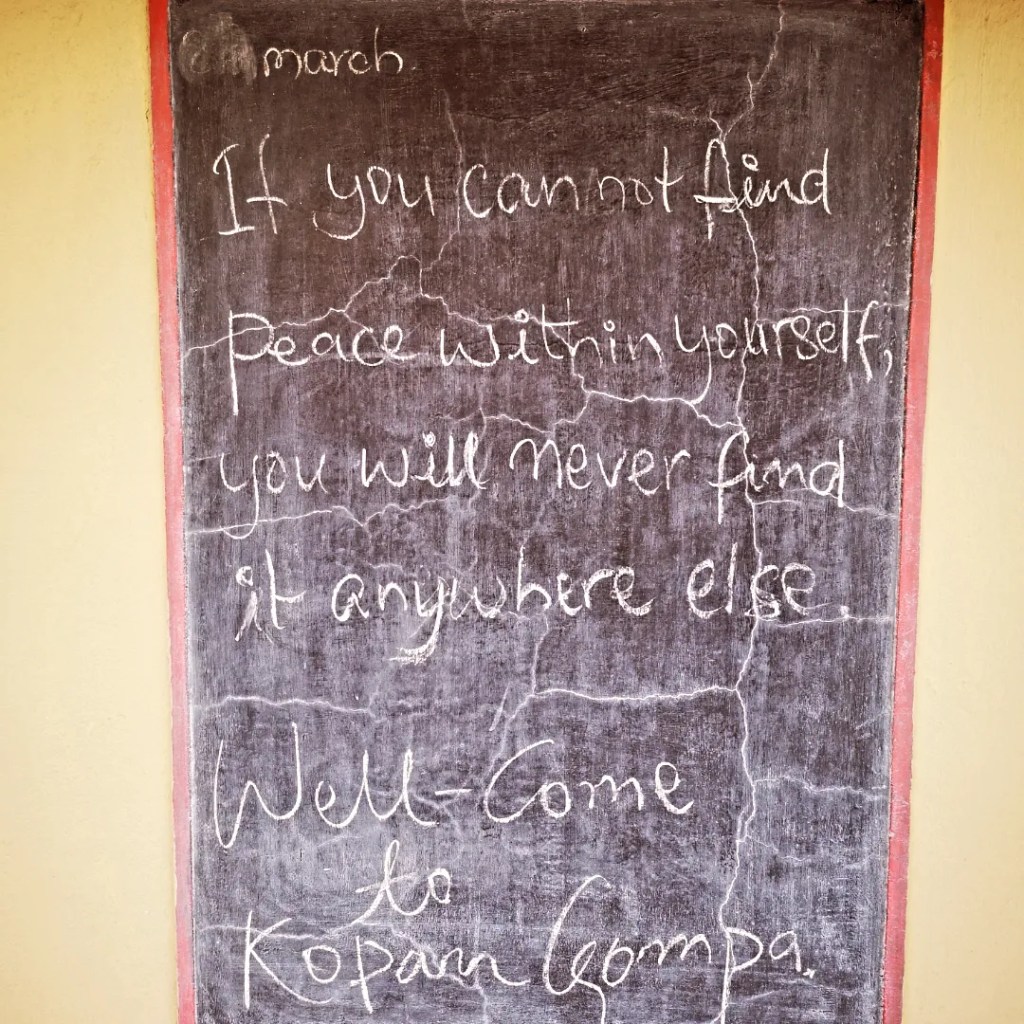 march
If you cannot find
peace within yourself,
you will never find
it anywhere else.
Well-Come
to
Kopan Gompa.